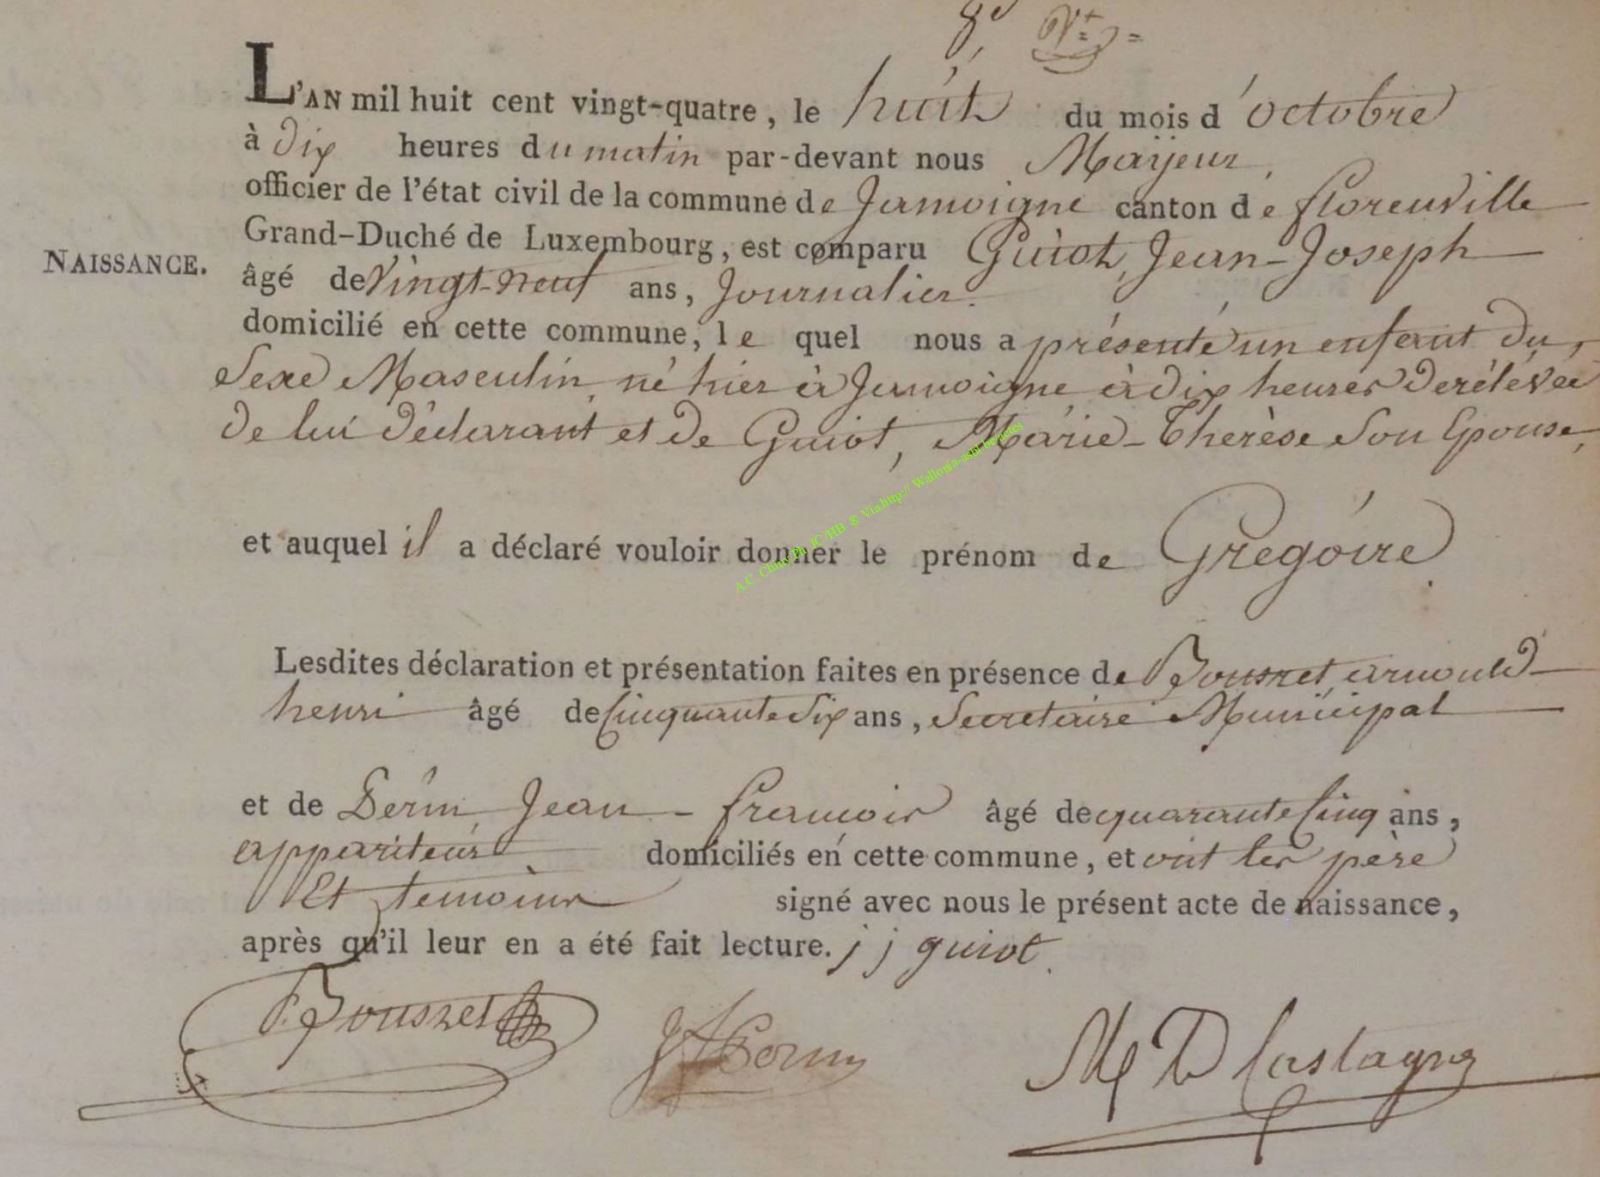 8e
L'AN mil huit cent vingt-quatre, le huit du mois d'octobre
à dix heures du matin par-devant nous Mayeur,
officier de l'état civil de la commune de Jamoigne canton de florenville
Grand-Duché de Luxembourg, est comparu Guiot, Jean-Joseph
NAISSANCE.
âgé de Vingt-neuf ans, Journalier.
domicilié en cette commune, le quel nous a présenté un enfant du
Sexe Masculin, né hier à Jamoigne à dix heures de rélévée
de lui déclarant et de Guiot, Marie-Therèse Son Epouse,
et auquel il a déclaré vouloir donner le prénom de Gregóire
Lesdites déclaration et présentation faites en présence de Bousret, arnould
henri âgé de Cinquante Six ans, Secretaire Municipal
et de Jean-francois âgé de quarante Cinq ans,
appariteur domiciliés en cette commune, et ont les père
Et temoins signé avec nous le présent acte de naissance,
après qu'il leur en a été fait lecture. j j guiot.
Bousret
M D Lastagne